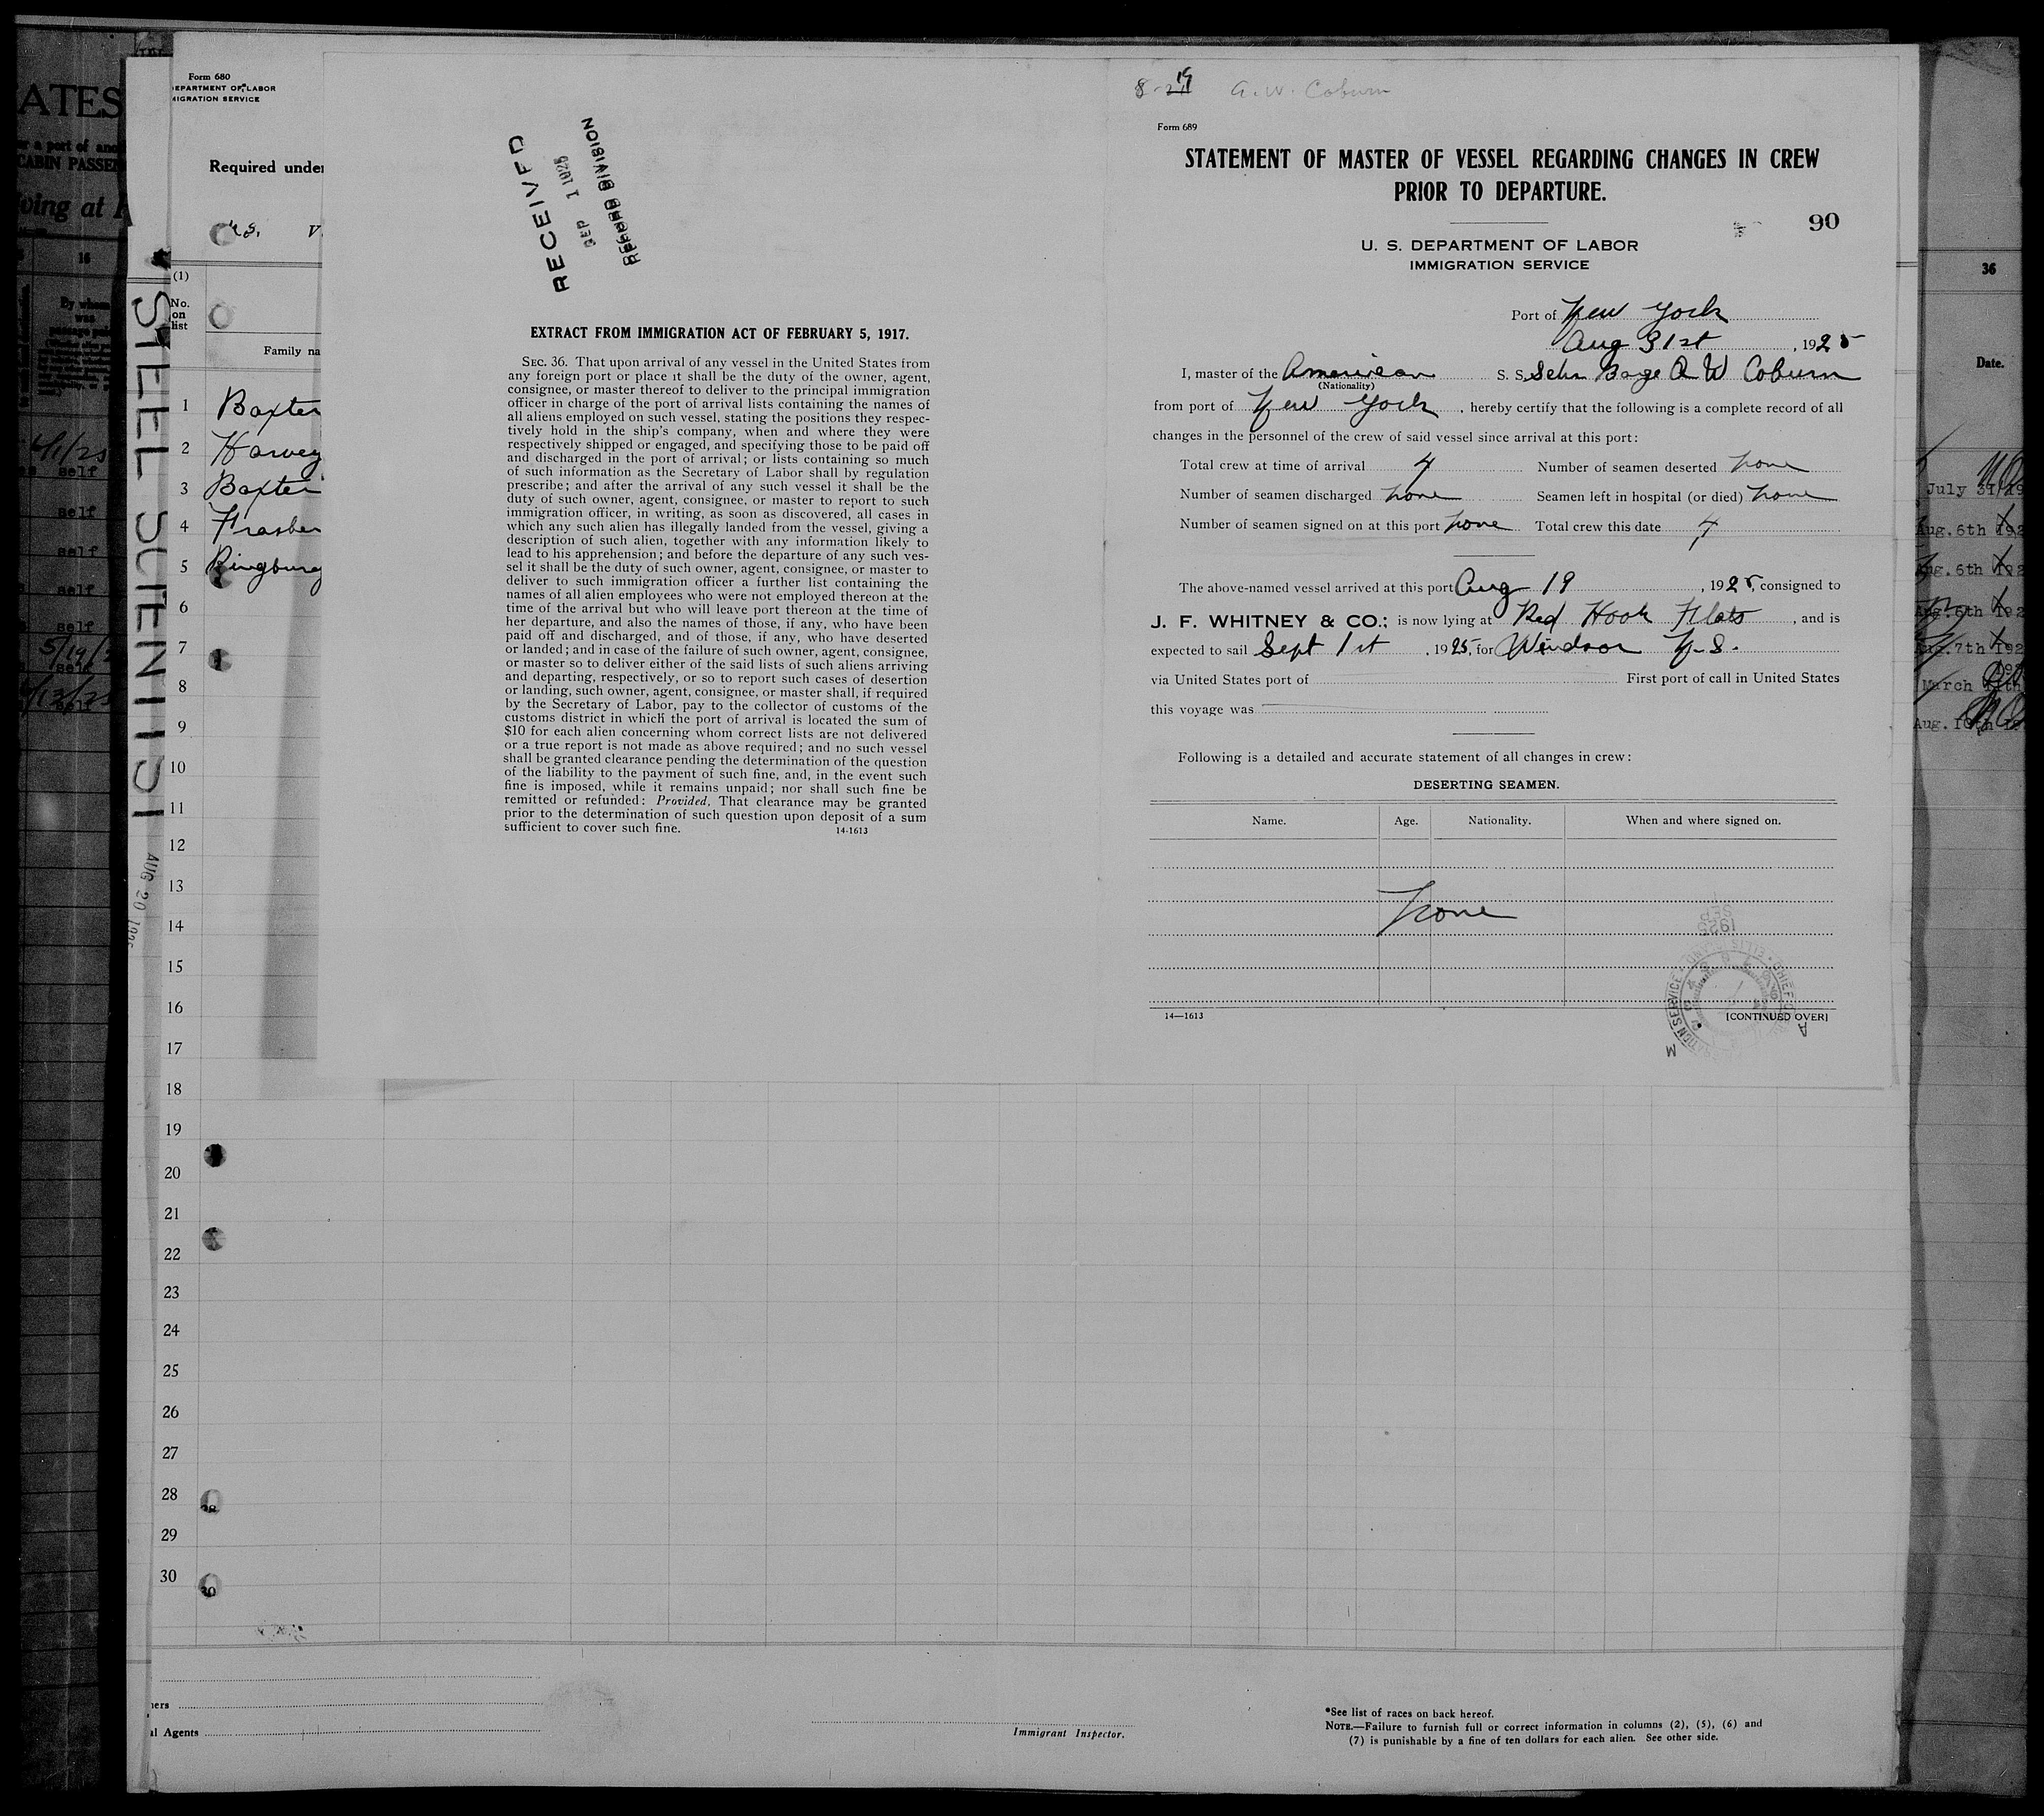 ATES
16
By whom
was
4/1/25
self
self
self
self
self
5/19/2
self
self
STEEL SCIENTIST
AUG 20 1925
Form 680
DEPARTMENT OF LABOR
MIGRATION SERVICE
Required under
(1)
No.
on
list
Family na
1 Baxter
2 Harvey
3 Baxter
4 Frasber
5 Ringburg
6
7
8
9
10
11
12
13
14
15
16
17
18
19
20
21
22
23
24
25
26
27
28
29
30
al Agents
Immigrant Inspector.
*See list of races on back hereof.
NOTE.—Failure to furnish full or correct information in columns (2), (5), (6) and
(7) is punishable by a fine of ten dollars for each alien. See other side.
RECEIVED
SEP 1 1925
RECORD DIVISION
EXTRACT FROM IMMIGRATION ACT OF FEBRUARY 5, 1917.
SEC. 36. That upon arrival of any vessel in the United States from
any foreign port or place it shall be the duty of the owner, agent,
consignee, or master thereof to deliver to the principal immigration
officer in charge of the port of arrival lists containing the names of
all aliens employed on such vessel, stating the positions they respec-
tively hold in the ship's company, when and where they were
respectively shipped or engaged, and specifying those to be paid off
and discharged in the port of arrival; or lists containing so much
of such information as the Secretary of Labor shall by regulation
prescribe; and after the arrival of any such vessel it shall be the
duty of such owner, agent, consignee, or master to report to such
immigration officer, in writing, as soon as discovered, all cases in
which any such alien has illegally landed from the vessel, giving a
description of such alien, together with any information likely to
lead to his apprehension; and before the departure of any such ves-
sel it shall be the duty of such owner, agent, consignee, or master to
deliver to such immigration officer a further list containing the
names of all alien employees who were not employed thereon at the
time of the arrival but who will leave port thereon at the time of
her departure, and also the names of those, if any, who have been
paid off and discharged, and of those, if any, who have deserted
or landed; and in case of the failure of such owner, agent, consignee,
or master so to deliver either of the said lists of such aliens arriving
and departing, respectively, or so to report such cases of desertion
or landing, such owner, agent, consignee, or master shall, if required
by the Secretary of Labor, pay to the collector of customs of the
customs district in which the port of arrival is located the sum of
$10 for each alien concerning whom correct lists are not delivered
or a true report is not made as above required; and no such vessel
shall be granted clearance pending the determination of the question
of the liability to the payment of such fine, and, in the event such
fine is imposed, while it remains unpaid; nor shall such fine be
remitted or refunded: Provided, That clearance may be granted
prior to the determination of such question upon deposit of a sum
sufficient to cover such fine. 14-1613
8-19 A. W. Coburn
Form 689
STATEMENT OF MASTER OF VESSEL REGARDING CHANGES IN CREW
PRIOR TO DEPARTURE.
90
U. S. DEPARTMENT OF LABOR
IMMIGRATION SERVICE
Port of New York
Aug 31st, 1925
I, master of the American S. S. Schr Barge A W Coburn
(Nationality)
from port of New York, hereby certify that the following is a complete record of all
changes in the personnel of the crew of said vessel since arrival at this port:
Total crew at time of arrival 4 Number of seamen deserted none
Number of seamen discharged none Seamen left in hospital (or died) none
Number of seamen signed on at this port none Total crew this date 4
The above-named vessel arrived at this port Aug 19, 1925, consigned to
J. F. WHITNEY & CO.; is now lying at Red Hook Flats, and is
expected to sail Sept 1st, 1925, for Windsor N.S.
via United States port of First port of call in United States
this voyage was
Following is a detailed and accurate statement of all changes in crew:
DESERTING SEAMEN.
Name. Age. Nationality. When and where signed on.
None
SEP
1925
14—1613 [CONTINUED OVER]
36
Date.
July 31/19
Aug. 6th 192
Aug. 6th 192
Aug. 6th 192
Aug. 7th 192
March 11th
Aug. 10th 19